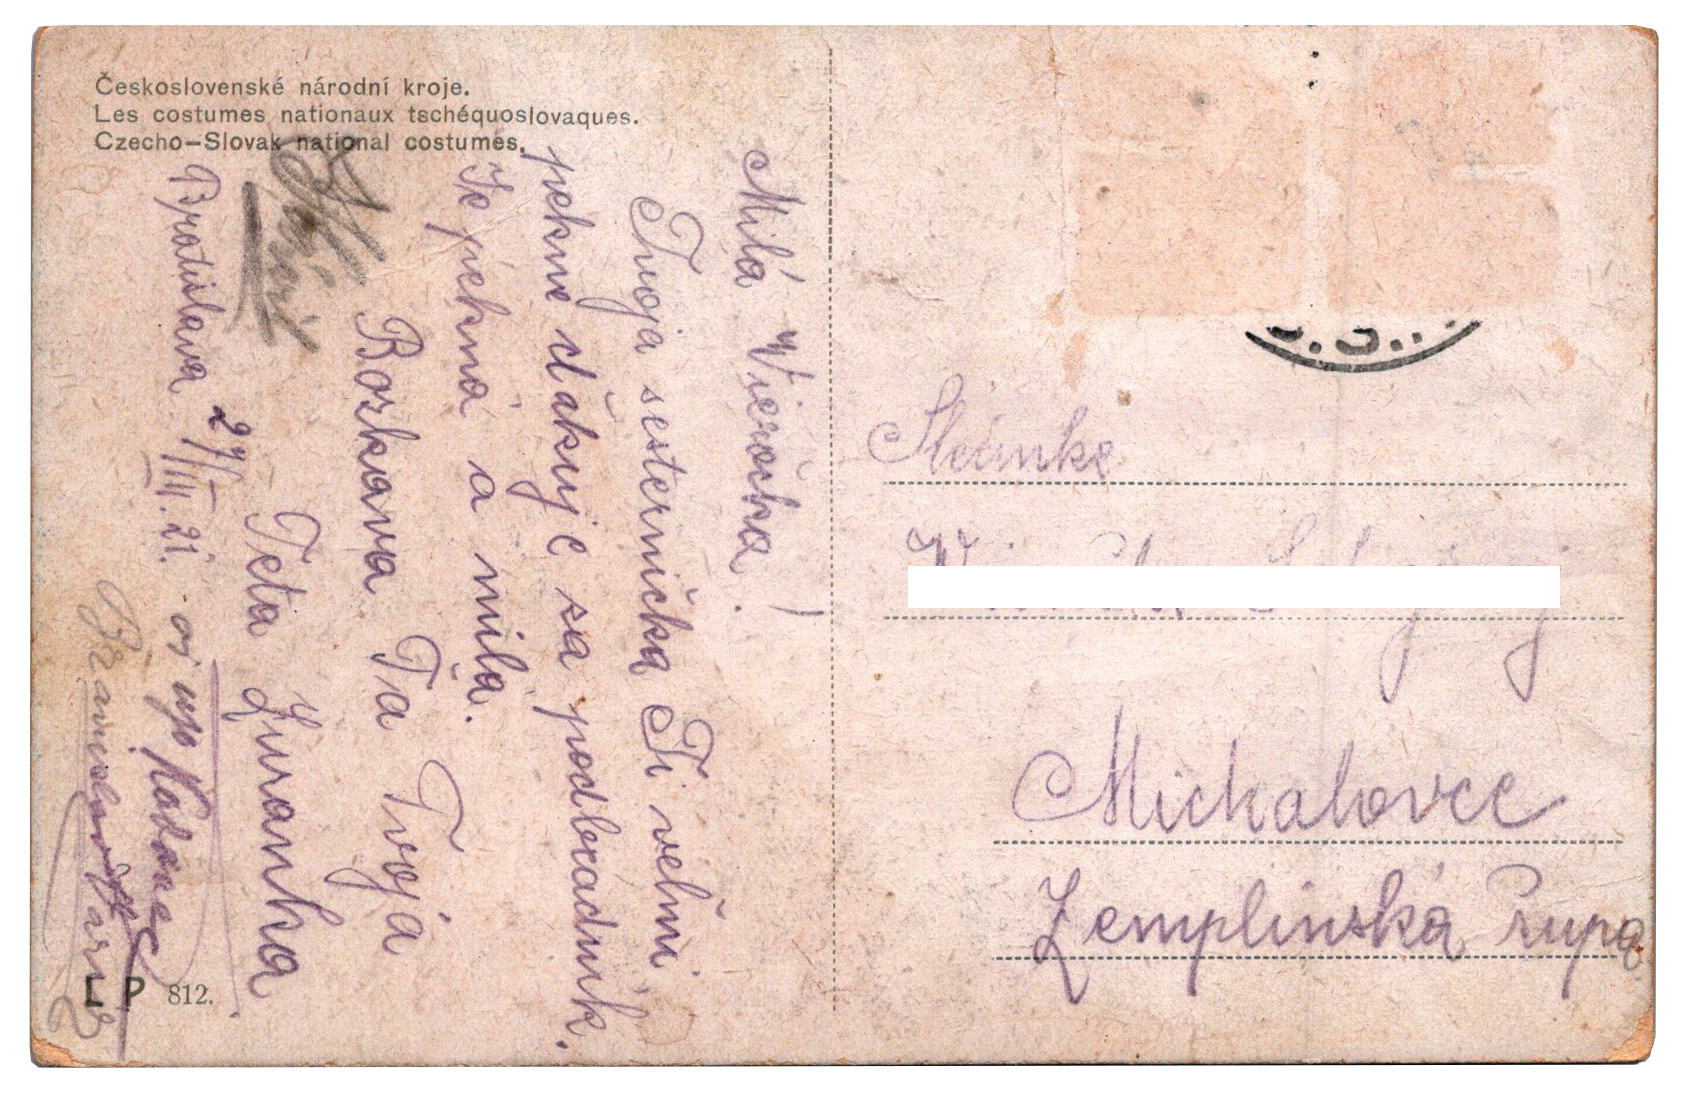 Československé národní kroje.
Les costumes nationaux tschéquoslovaques.
Czecho-Slovak national costumes.
Milá Vieročka!
Tvoja sesternička Ti veľmi
pekne ďakuje sa podbradník.
Je pekná a milá.
Bozkáva Ťa Tvojá
Teta Zuranka
Bratislava 27/III. 21.
Slečinke
Michalovce
Zemplinská župa
L P 812.